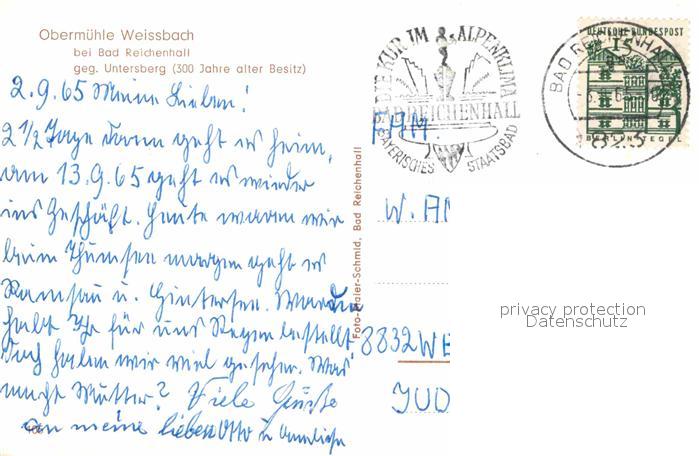 Obermühle Weissbach
bei Bad Reichenhall
geg. Untersberg (300 Jahre alter Besitz)
2.9.65 Meine Lieben!
2 1/2 Tage dann geht es heim,
am 13.9.65 geht es wieder
ins Geschäft. Heute waren wir
beim Thumsee morgen geht es
Ramsau u. Hintersee. Warum
habt Ihr für uns Regen bestellt.
Doch haben wir viel gesehen. Was
macht Mutter? Viele Grüße
an meine lieben Otto u
Foto-Baier-Schmid, Bad Reichenhall
DIE KUR IM ALPENKLIMA
BAD REICHENHALL
BAYERISCHES STAATSBAD
DEUTSCHE BUNDESPOST
15
BERLIN TEGEL
BAD REICHENHALL
FAM.
W. AM
8832 WE
privacy protection
Datenschutz